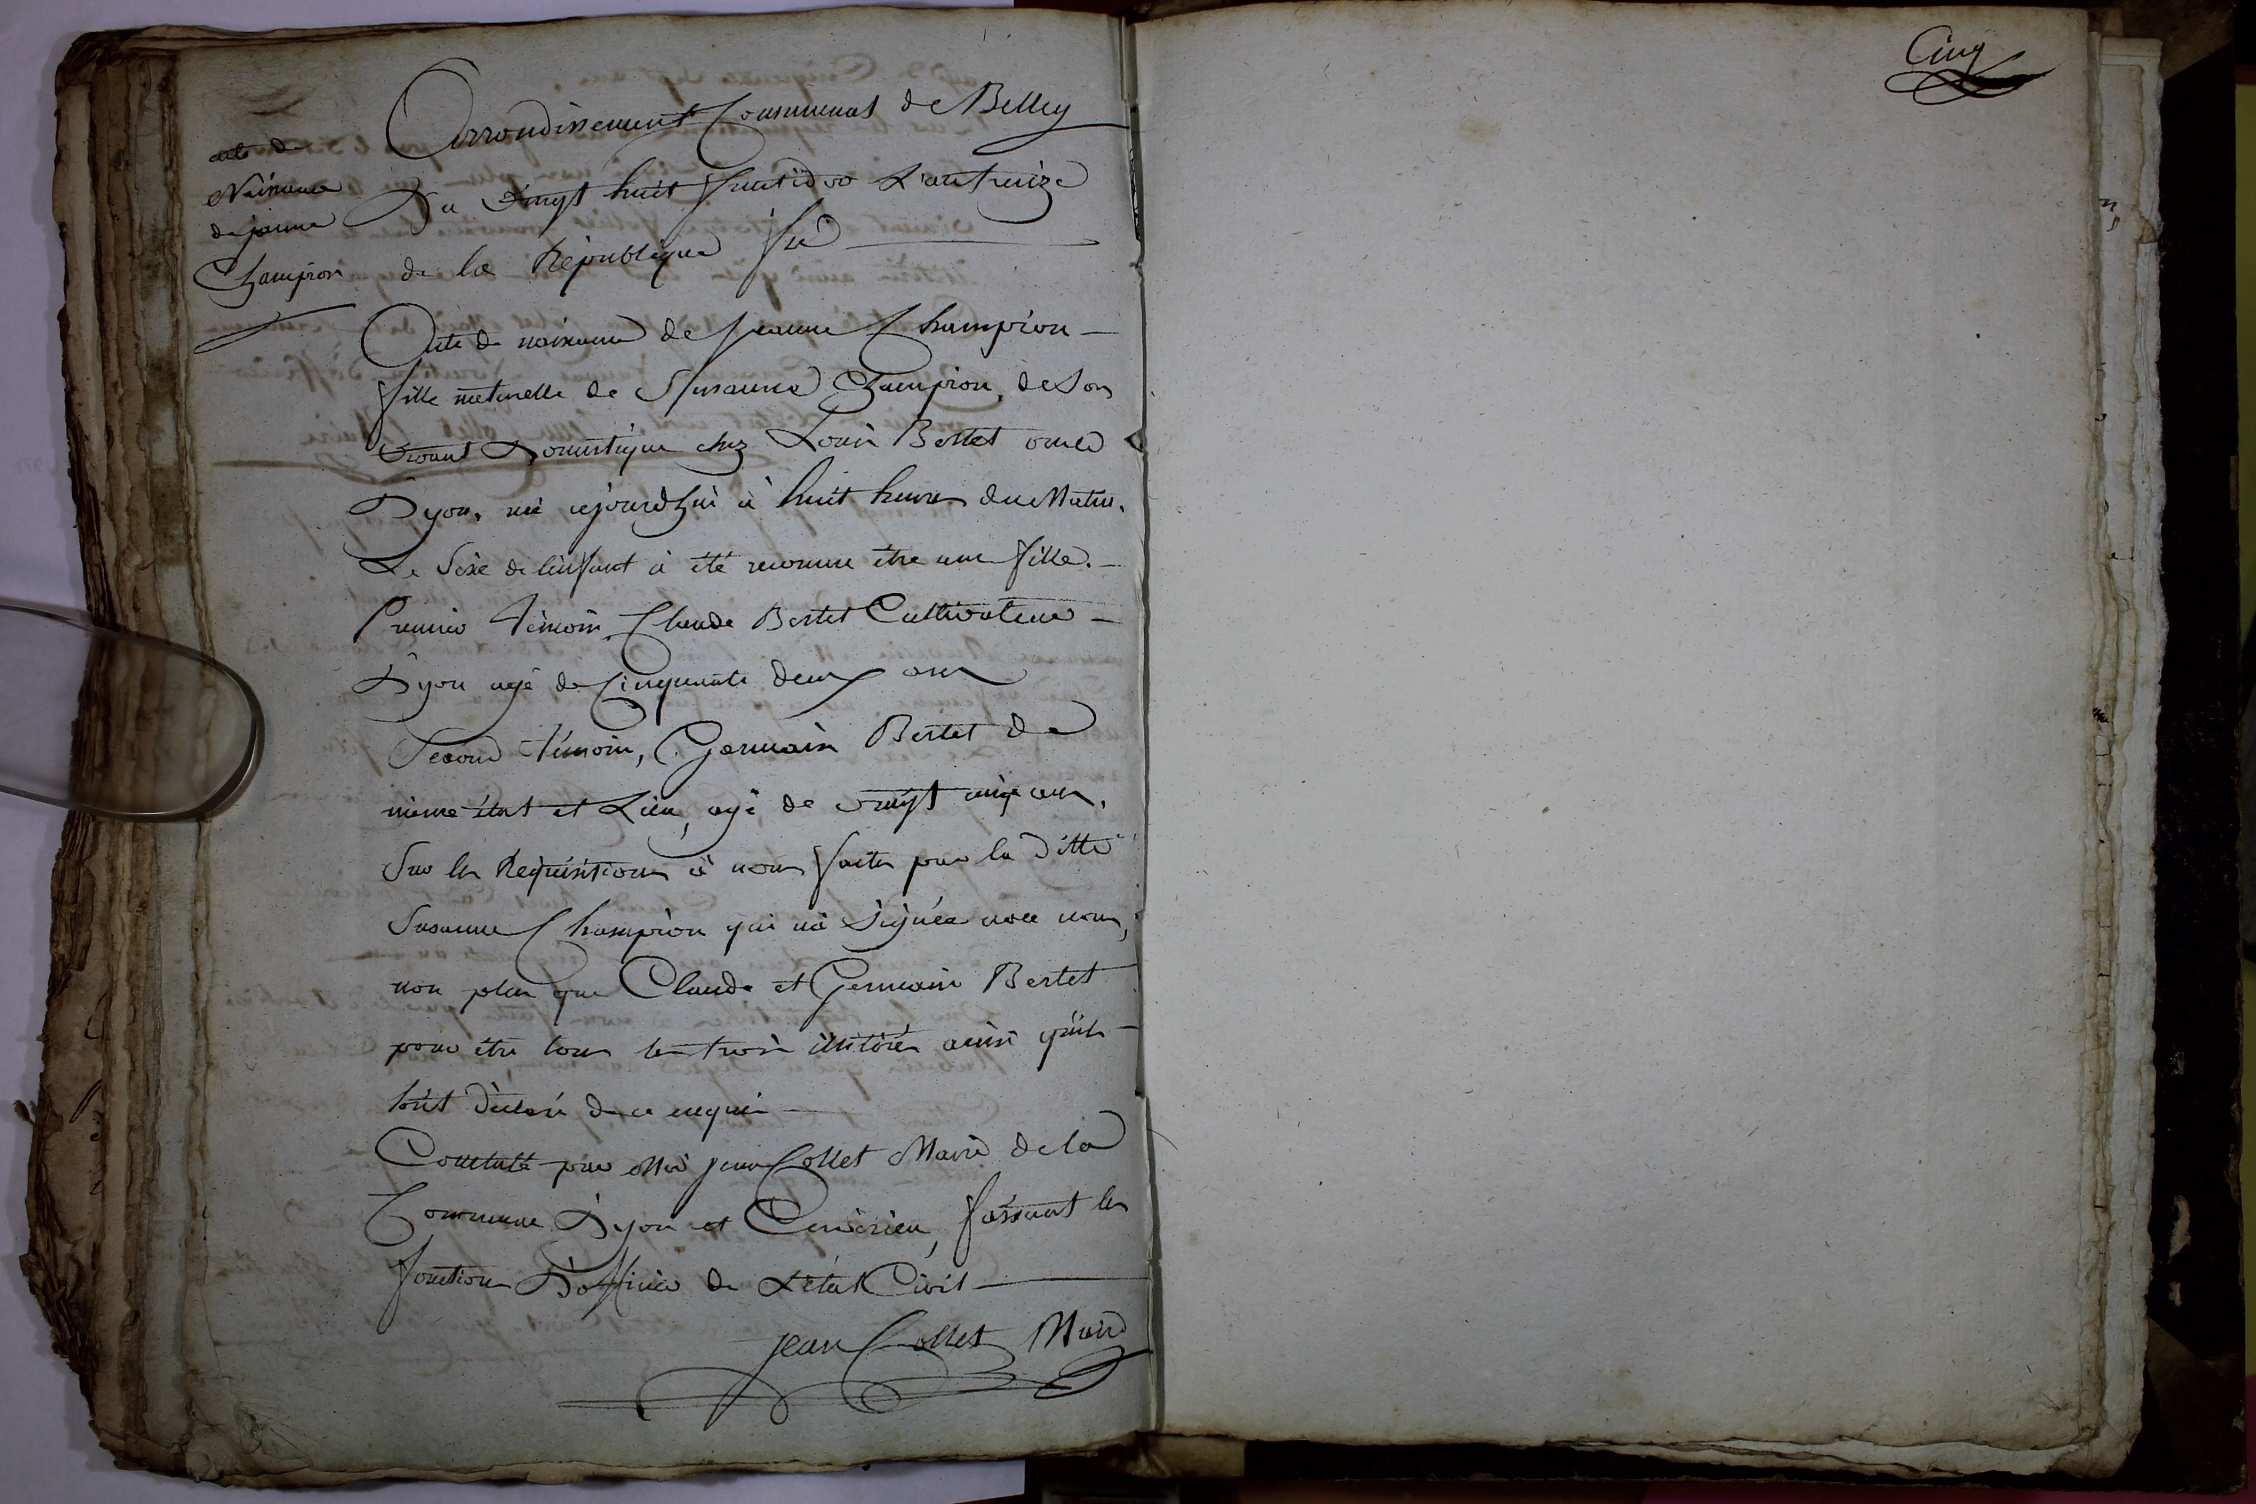 Cinq
acte de
Naissance
de jeanne
Champion
Arrondissement Communal de Belley
Du vingt huit fructidor L'an treize
de la République fse
Acte de naissance de Jeanne Champion
fille naturelle de Susanne Champion, de Son
vivant Domestique chez Louis Bertet
Dyon, né cejourd'hui à huit heures du Matin.
Le Sèxe de l'enfant à été reconnu être une fille.
Premier Témoin Claude Bertet Cultivateur
Dyon agé de Cinquante deux ans
Second témoin, Germain Bertet de
même état et Lieu, agé de vingt cinq ans.
Sur les Réquisitions à nous faites par la ditte
Susanne Champion qui n'a Signée avec nous,
non plus que Claude et Germain Bertet
pour être tous les trois illitérés ainsi qu'ils
l'ont déclaré de ce enquis
Constaté par Moi Jean Collet Maire de la
Commune Dyon et Cerveirieu, faissant les
fonctions D'officier de L'état Civil
jean Collet Maire